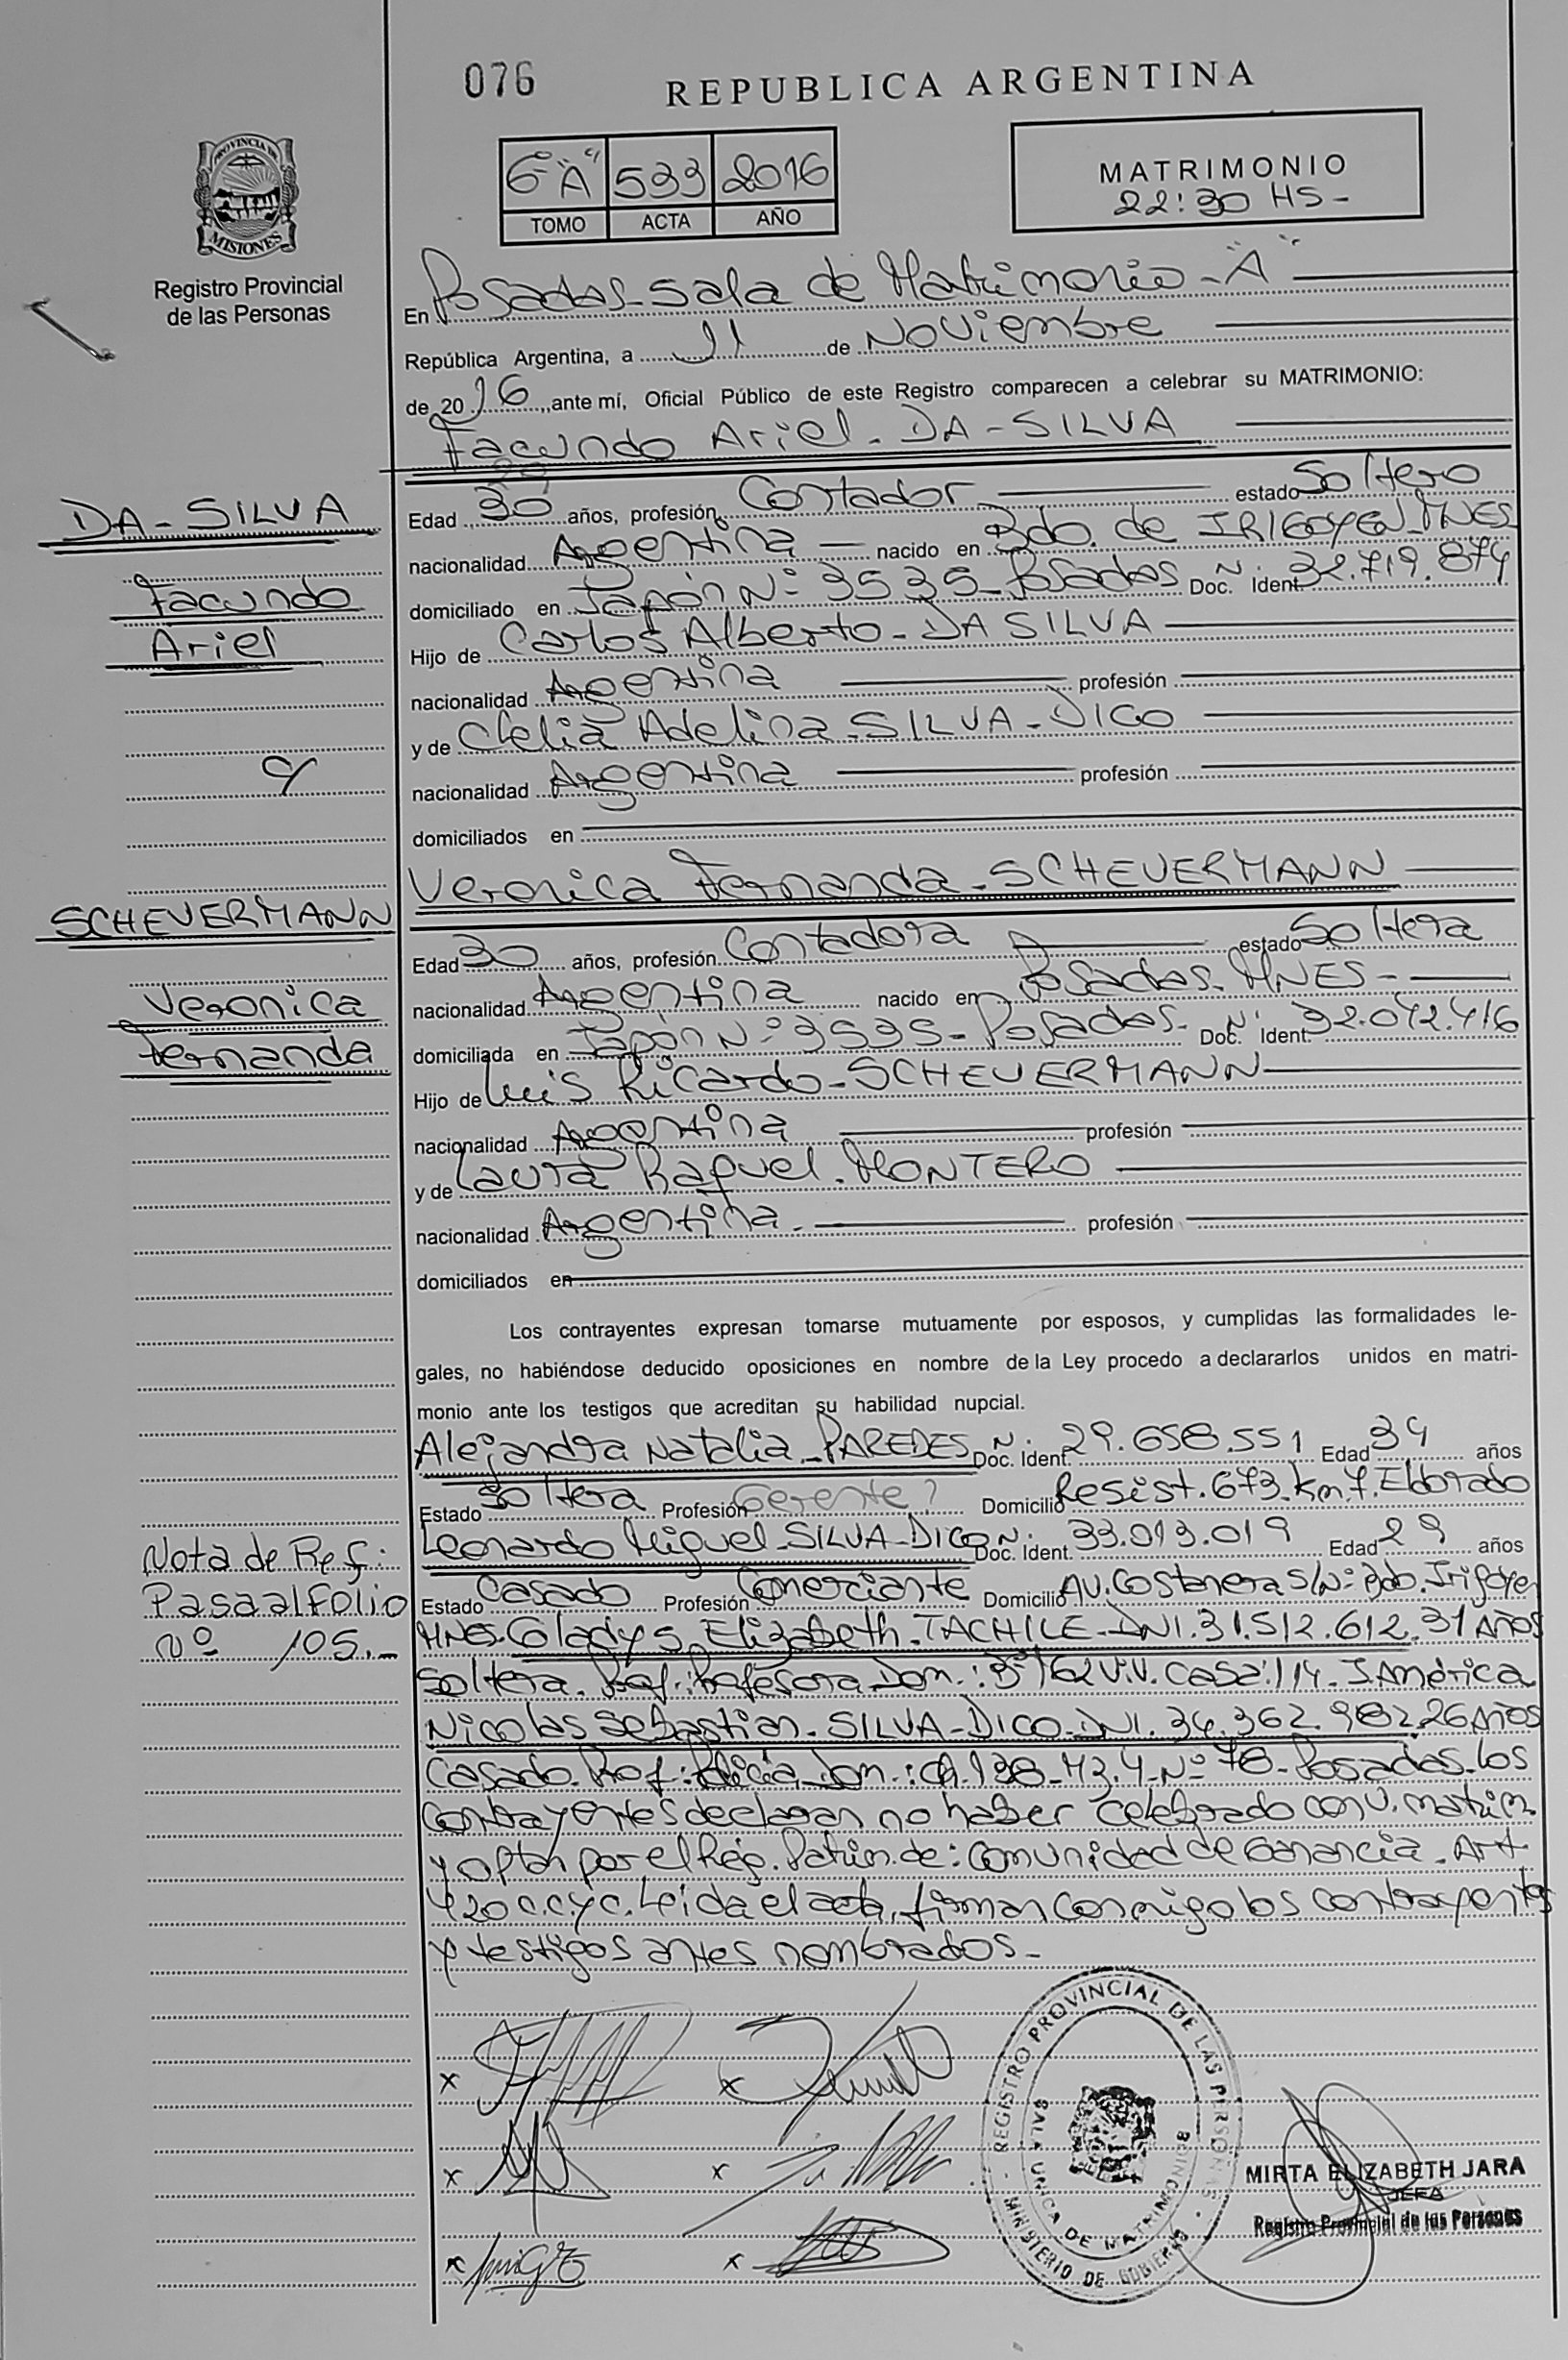 076
REPUBLICA ARGENTINA
PROVINCIA DE
MISIONES
Registro Provincial
de las Personas
6º "A" 533 2016
TOMO ACTA AÑO
MATRIMONIO
22:30 HS-
En Posadas-Sala de Matrimonio-"A"
República Argentina, a 11 de Noviembre
de 2016, ante mí, Oficial Público de este Registro comparecen a celebrar su MATRIMONIO:
Facundo Ariel. DA-SILVA
DA-SILVA
Facundo
Ariel
c/
SCHEUERMANN
Veronica
Fernanda
Edad 30 años, profesión Contador estado Soltero
nacionalidad Argentina nacido en Bdo. de IRIGOYEN MNES
domiciliado en Japón Nº 3535-Posadas Doc. Nº Ident. 32.719.874
Hijo de Carlos Alberto-DA SILVA
nacionalidad Argentina profesión
y de Clelia Adelina-SILVA-DICO
nacionalidad Argentina profesión
domiciliados en
Veronica Fernanda-SCHEUERMANN
Edad 30 años, profesión Contadora estado Soltera
nacionalidad Argentina nacido en Posadas. MNES-
domiciliada en Japón Nº 3535-Posadas. Doc. Nº Ident. 32.042.416
Hijo de Luis Ricardo-SCHEUERMANN
nacionalidad Argentina profesión
y de Laura Raquel. MONTERO
nacionalidad Argentina. profesión
domiciliados en
Los contrayentes expresan tomarse mutuamente por esposos, y cumplidas las formalidades le-
gales, no habiéndose deducido oposiciones en nombre de la Ley procedo a declararlos unidos en matri-
monio ante los testigos que acreditan su habilidad nupcial.
Alejandra Natalia-PAREDES Doc. Nº Ident. 29.658.551 Edad 34 años
Estado Soltera Profesión Gerente Domicilio Resist. 673. Km. 7. Eldorado
Leonardo Miguel-SILVA-DICO Doc. Nº Ident. 33.013.019 Edad 29 años
Estado Casado Profesión Comerciante Domicilio AV. Costanera S/Nº Bdo. Irigoyen
MNES. Gladys Elizabeth-TACHILE-DNI. 31.512.612. 31 Años
Soltera. Prof.: Profesora Dom.: Bº 162 V.V. Casa: 114. J. América
Nicolas Sebastian-SILVA-DICO-DNI. 34.362.982. 26 Años
Casado. Prof: Policía Dom.: Ch. 138-MZ. 4-Nº 78-Posadas-los
Contrayentes declaran no haber celebrado conv. matrim.
y optan por el Reg. Patrim. de: Comunidad de Ganancia. Art.
420 c.c.y c. Leida el acta, firman conmigo los contrayentes
y testigos antes nombrados-
Nota de Ref:
Pasa al Folio
Nº 105.-
REGISTRO PROVINCIAL DE LAS PERSONAS
MINISTERIO DE GOBIERNO
SALA UNICA DE MATRIMONIOS
MIRTA ELIZABETH JARA
JEFA
Registro Provincial de las Personas